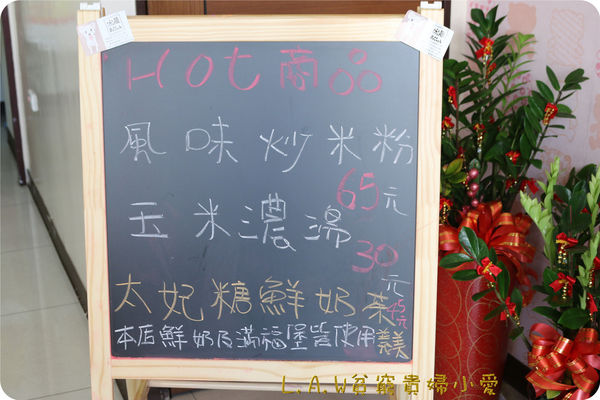 Hot 商品
風味炒米粉
65元
玉米濃湯
30元
太妃糖鮮奶茶
45元
本店鮮奶及滿福堡皆使用
L.A.W谷窮貴婦小愛